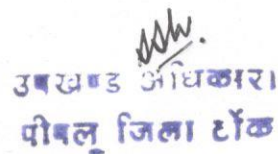 उपखण्ड अधिकारी
पीपलू जिला टोंक